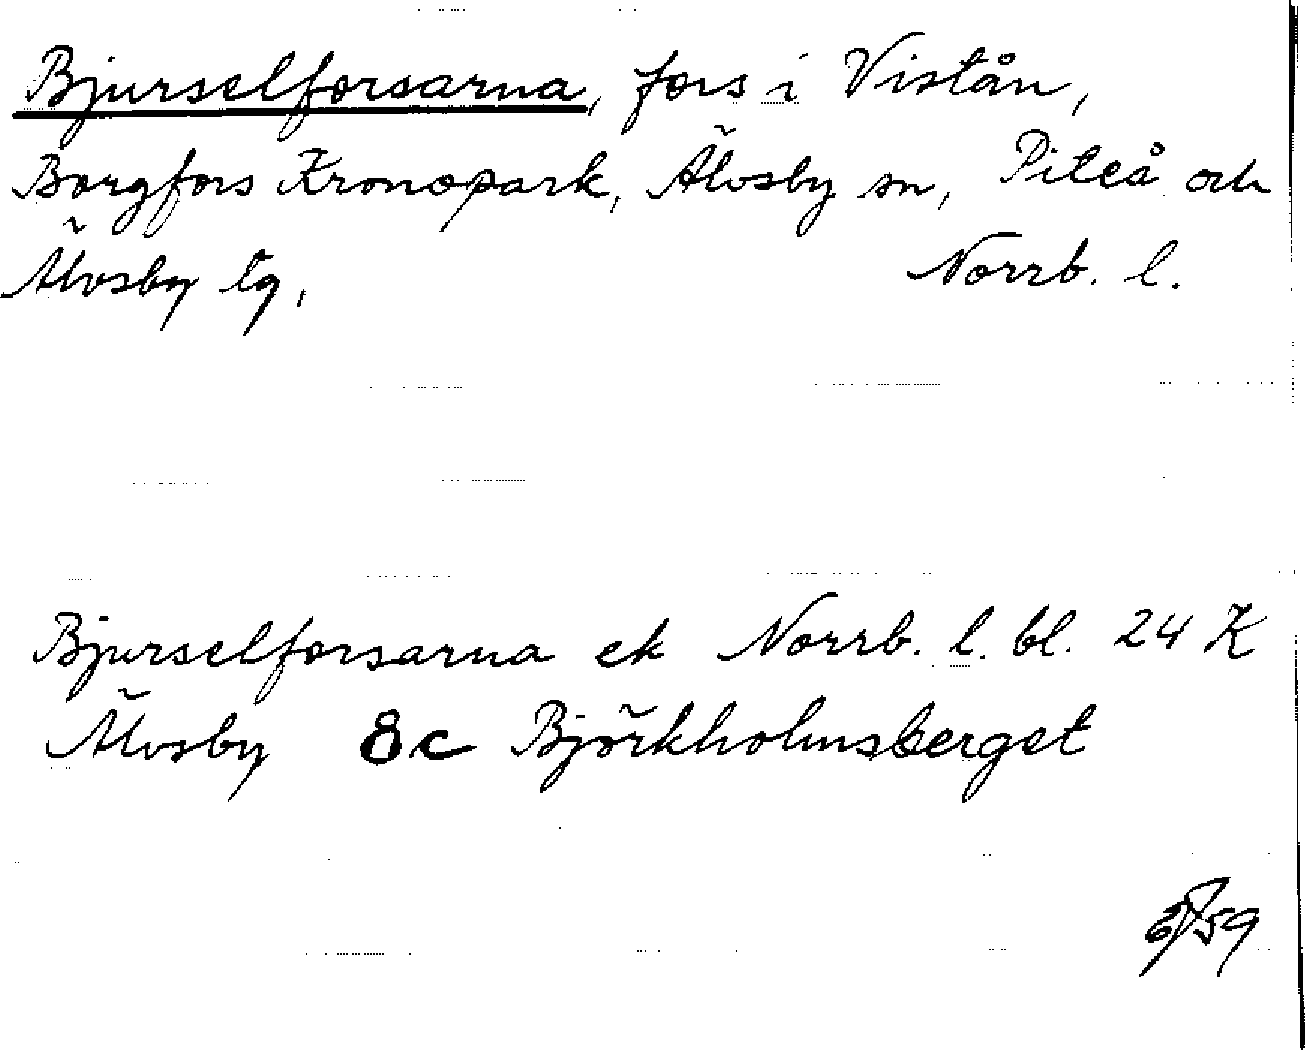 Bjurselforsarna, fors i Vistån,
Borgfors Kronopark, Älvsby sn, Piteå och
Älvsby tg, Norrb. l.
Bjurselforsarna ek Norrb. l. bl. 24 K
Älvsby 8c Björkholmsberget